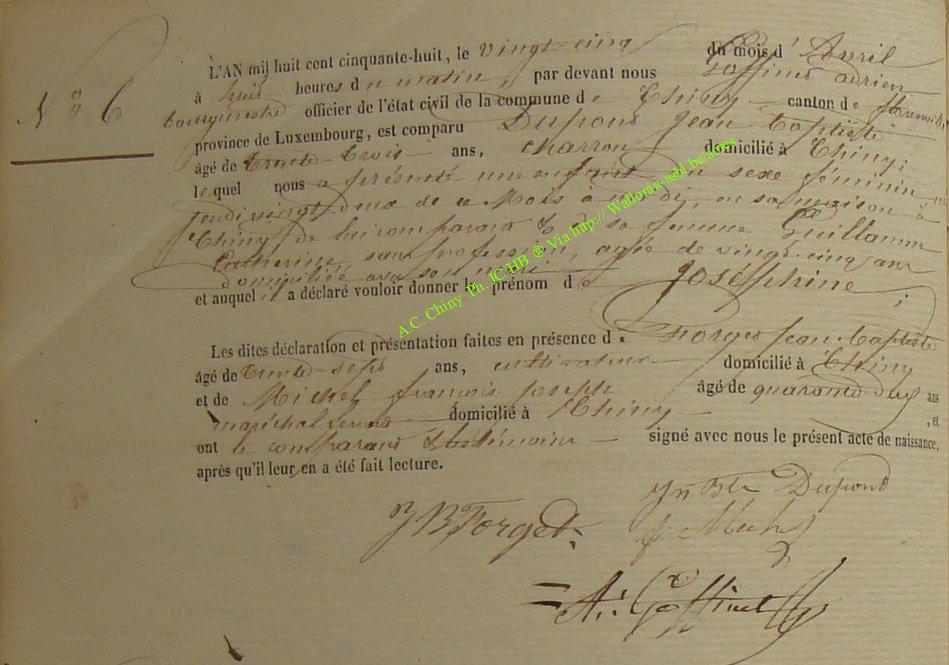 N° 6
L'AN mil huit cent cinquante-huit, le vingt-cinq du mois d'Avril
à huit heures du matin par devant nous Goffinet adrien
bourgmestre officier de l'état civil de la commune de Chiny canton de florenville
province de Luxembourg, est comparu Dupond Jean baptiste
âgé de trente-trois ans, charron domicilié à Chiny;
lequel nous a présenté une enfant du sexe féminin
jeudi vingt deux de ce Mois à midi, en sa maison à
Chiny de lui comparant & de sa femme Guillaume
Catherine, sans profession, agée de vingt-cinq ans
domicilié avec son mari
et auquel il a déclaré vouloir donner le prénom de Joséphine;
Les dites déclaration et présentation faites en présence de Forget Jean-baptiste
âgé de trente-sept ans, cultivateur domicilié à Chiny
et de Michel françois joseph âgé de quarante-deux ans
maréchal ferrant domicilié à Chiny, et
ont le comparant & les témoins signé avec nous le présent acte de naissance,
après qu'il leur en a été fait lecture.
Jn Bte Dupond
J B Forget.
A. Goffinet
A.C. Chiny Ph. IC/HB ® Via http:// Wallonia-asbl.be/actes